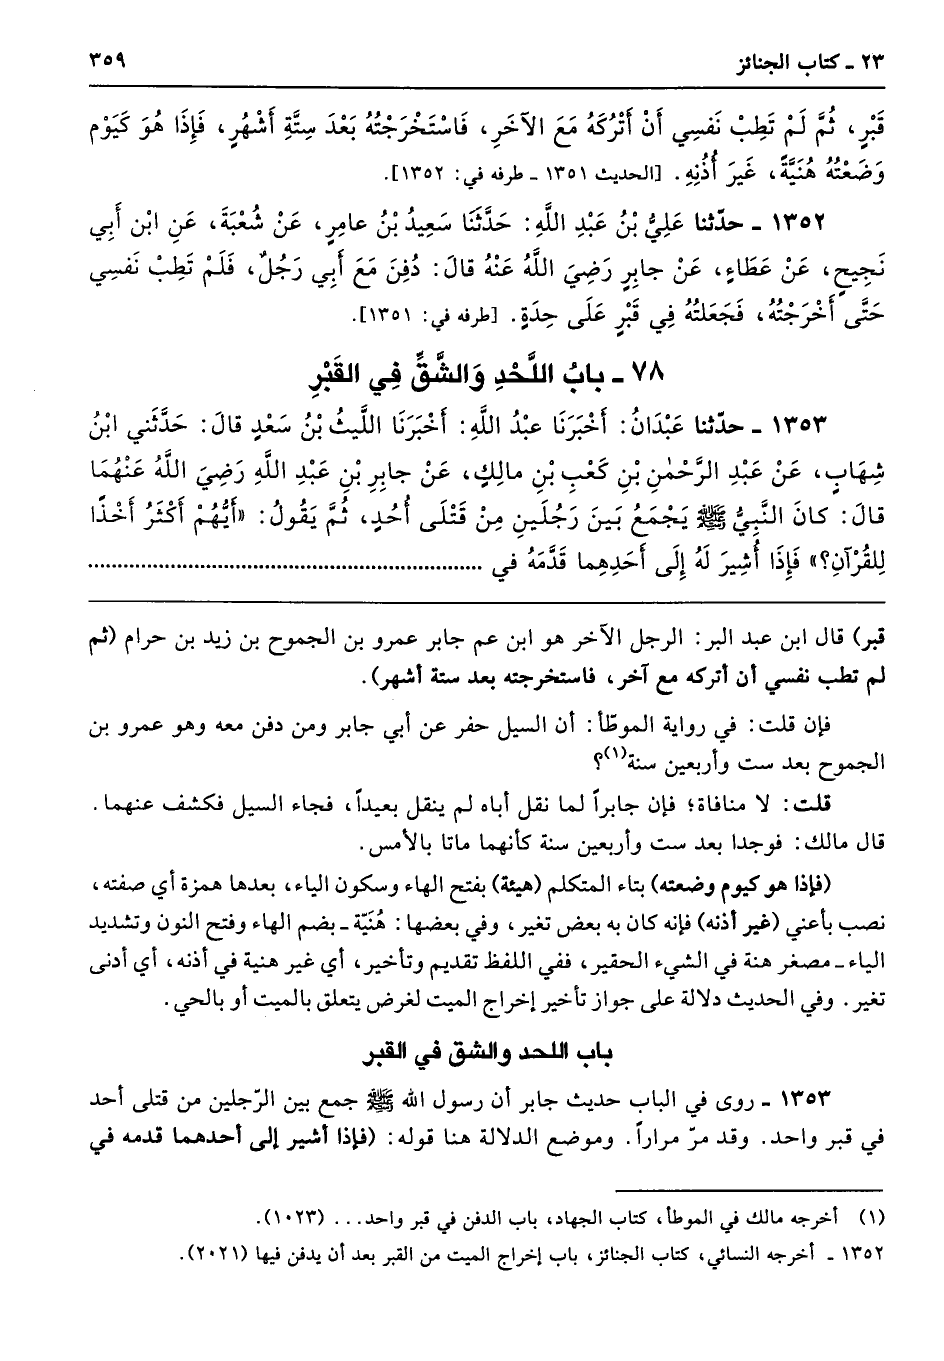 ٢٣ ـ كتاب الجنائز ٣٥٩
قَبْرٍ، ثُمَّ لَمْ تَطِبْ نَفْسِي أَنْ أَتْرُكَهُ مَعَ الآخَرِ، فَاسْتَخْرَجْتُهُ بَعْدَ سِتَّةِ أَشْهُرٍ، فَإِذَا هُوَ كَيَوْمِ
وَضَعْتُهُ هُنَيَّةً، غَيرَ أُذُنِهِ. [الحديث ١٣٥١ ـ طرفه في: ١٣٥٢].
١٣٥٢ ـ حدّثنا عَلِيُّ بْنُ عَبْدِ اللَّهِ: حَدَّثَنَا سَعِيدُ بْنُ عامِرٍ، عَنْ شُعْبَةَ، عَنِ ابْنِ أَبِي
نَجِيحٍ، عَنْ عَطَاءٍ، عَنْ جابِرٍ رَضِيَ اللَّهُ عَنْهُ قالَ: دُفِنَ مَعَ أَبِي رَجُلٌ، فَلَمْ تَطِبْ نَفْسِي
حَتَّى أَخْرَجْتُهُ، فَجَعَلتُهُ فِي قَبْرٍ عَلَى حِدَةٍ. [طرفه في: ١٣٥١].
٧٨ ـ بابُ اللَّحْدِ وَالشَّقِّ فِي القَبْرِ
١٣٥٣ ـ حدّثنا عَبْدَانُ: أَخْبَرَنَا عبْدُ اللَّهِ: أَخْبَرَنَا اللَّيثُ بْنُ سَعْدٍ قالَ: حَدَّثَني ابْنُ
شِهَابٍ، عَنْ عَبْدِ الرَّحْمٰنِ بْنِ كَعْبِ بْنِ مالِكٍ، عَنْ جابِرِ بْنِ عَبْدِ اللَّهِ رَضِيَ اللَّهُ عَنْهُمَا
قالَ: كانَ النَّبِيُّ ﷺ يَجْمَعُ بَينَ رَجُلَينِ مِنْ قَتْلَى أُحُدٍ، ثُمَّ يَقُولُ: «أَيُّهُمْ أَكْثَرُ أَخْذًا
لِلقُرْآنِ؟» فَإِذَا أُشِيرَ لَهُ إِلَى أَحَدِهِما قَدَّمَهُ في ................................................................
قبر) قال ابن عبد البر: الرجل الآخر هو ابن عم جابر عمرو بن الجموح بن زيد بن حرام (ثم
لم تطب نفسي أن أتركه مع آخر، فاستخرجته بعد ستة أشهر).
فإن قلت: في رواية الموطّأ: أن السيل حفر عن أبي جابر ومن دفن معه وهو عمرو بن
الجموح بعد ست وأربعين سنة(١)؟
قلت: لا منافاة؛ فإن جابراً لما نقل أباه لم ينقل بعيداً، فجاء السيل فكشف عنهما.
قال مالك: فوجدا بعد ست وأربعين سنة كأنهما ماتا بالأمس.
(فإذا هو كيوم وضعته) بتاء المتكلم (هيئة) بفتح الهاء وسكون الياء، بعدها همزة أي صفته،
نصب بأعني (غير أذنه) فإنه كان به بعض تغير، وفي بعضها: هُنَيّة ـ بضم الهاء وفتح النون وتشديد
الياء ـ مصغر هنة في الشيء الحقير، ففي اللفظ تقديم وتأخير، أي غير هنية في أذنه، أي أدنى
تغير. وفي الحديث دلالة على جواز تأخير إخراج الميت لغرض يتعلق بالميت أو بالحي.
باب اللحد والشق في القبر
١٣٥٣ ـ روى في الباب حديث جابر أن رسول الله ﷺ جمع بين الرّجلين من قتلى أحد
في قبر واحد. وقد مرّ مراراً. وموضع الدلالة هنا قوله: (فإذا أشير إلى أحدهما قدمه في
(١) أخرجه مالك في الموطأ، كتاب الجهاد، باب الدفن في قبر واحد... (١٠٢٣).
١٣٥٢ ـ أخرجه النسائي، كتاب الجنائز، باب إخراج الميت من القبر بعد أن يدفن فيها (٢٠٢١).